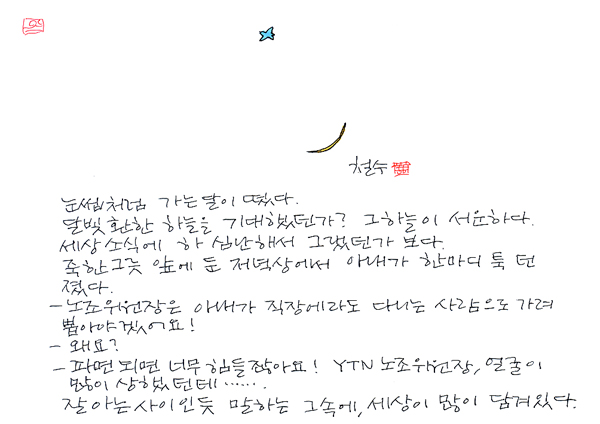 철수
눈썹처럼 가는 달이 떴다.
달빛 환한 하늘을 기대했던가? 그하늘이 서운하다.
세상 소식에 하 심난해서 그랬던가 보다.
죽한그릇 앞에 둔 저녁상에서 아내가 한마디 툭 던
졌다.
- 노조위원장은 아내가 직장에라도 다니는 사람으로 가려
뽑아야겠어요!
- 왜요?
- 파면 되면 너무 힘들잖아요! YTN 노조위원장, 얼굴이
많이 상했던데……
잘 아는 사이인듯 말하는 그속에, 세상이 많이 담겨있다.